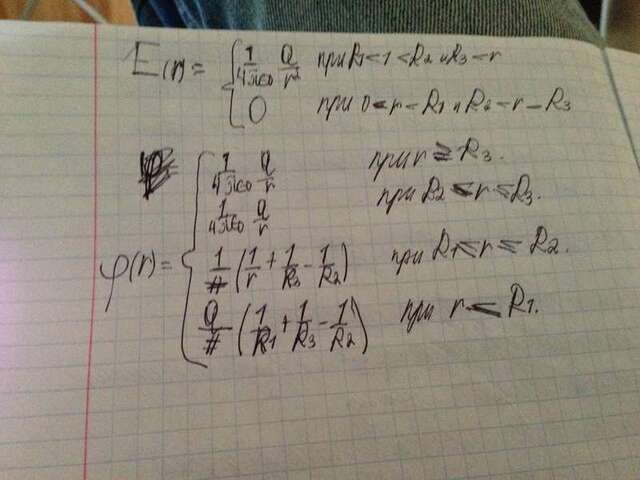 E(r) = { 1/4πε0 Q/r² при R1<1<R2 и R3<r
0 при 0<r–R1 и R2–r–R3
φ(r) = { 1/4πε0 Q/r при r ≥ R3.
1/4πε0 Q/r при R2≤r≤R3.
1/# (1/r + 1/R3 – 1/R2) при R1≤r≤R2.
Q/# (1/R1 + 1/R3 – 1/R2) при r≤R1.